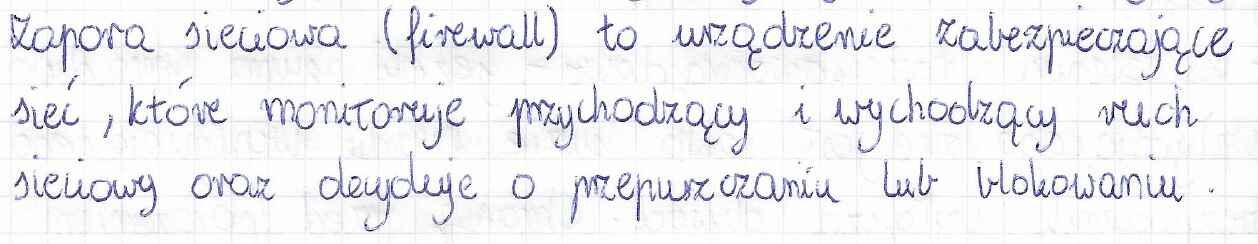 Zapora sieciowa (firewall) to urządzenie zabezpieczające
sieć, które monitoruje przychodzący i wychodzący ruch
sieciowy oraz decyduje o przepuszczaniu lub blokowaniu.